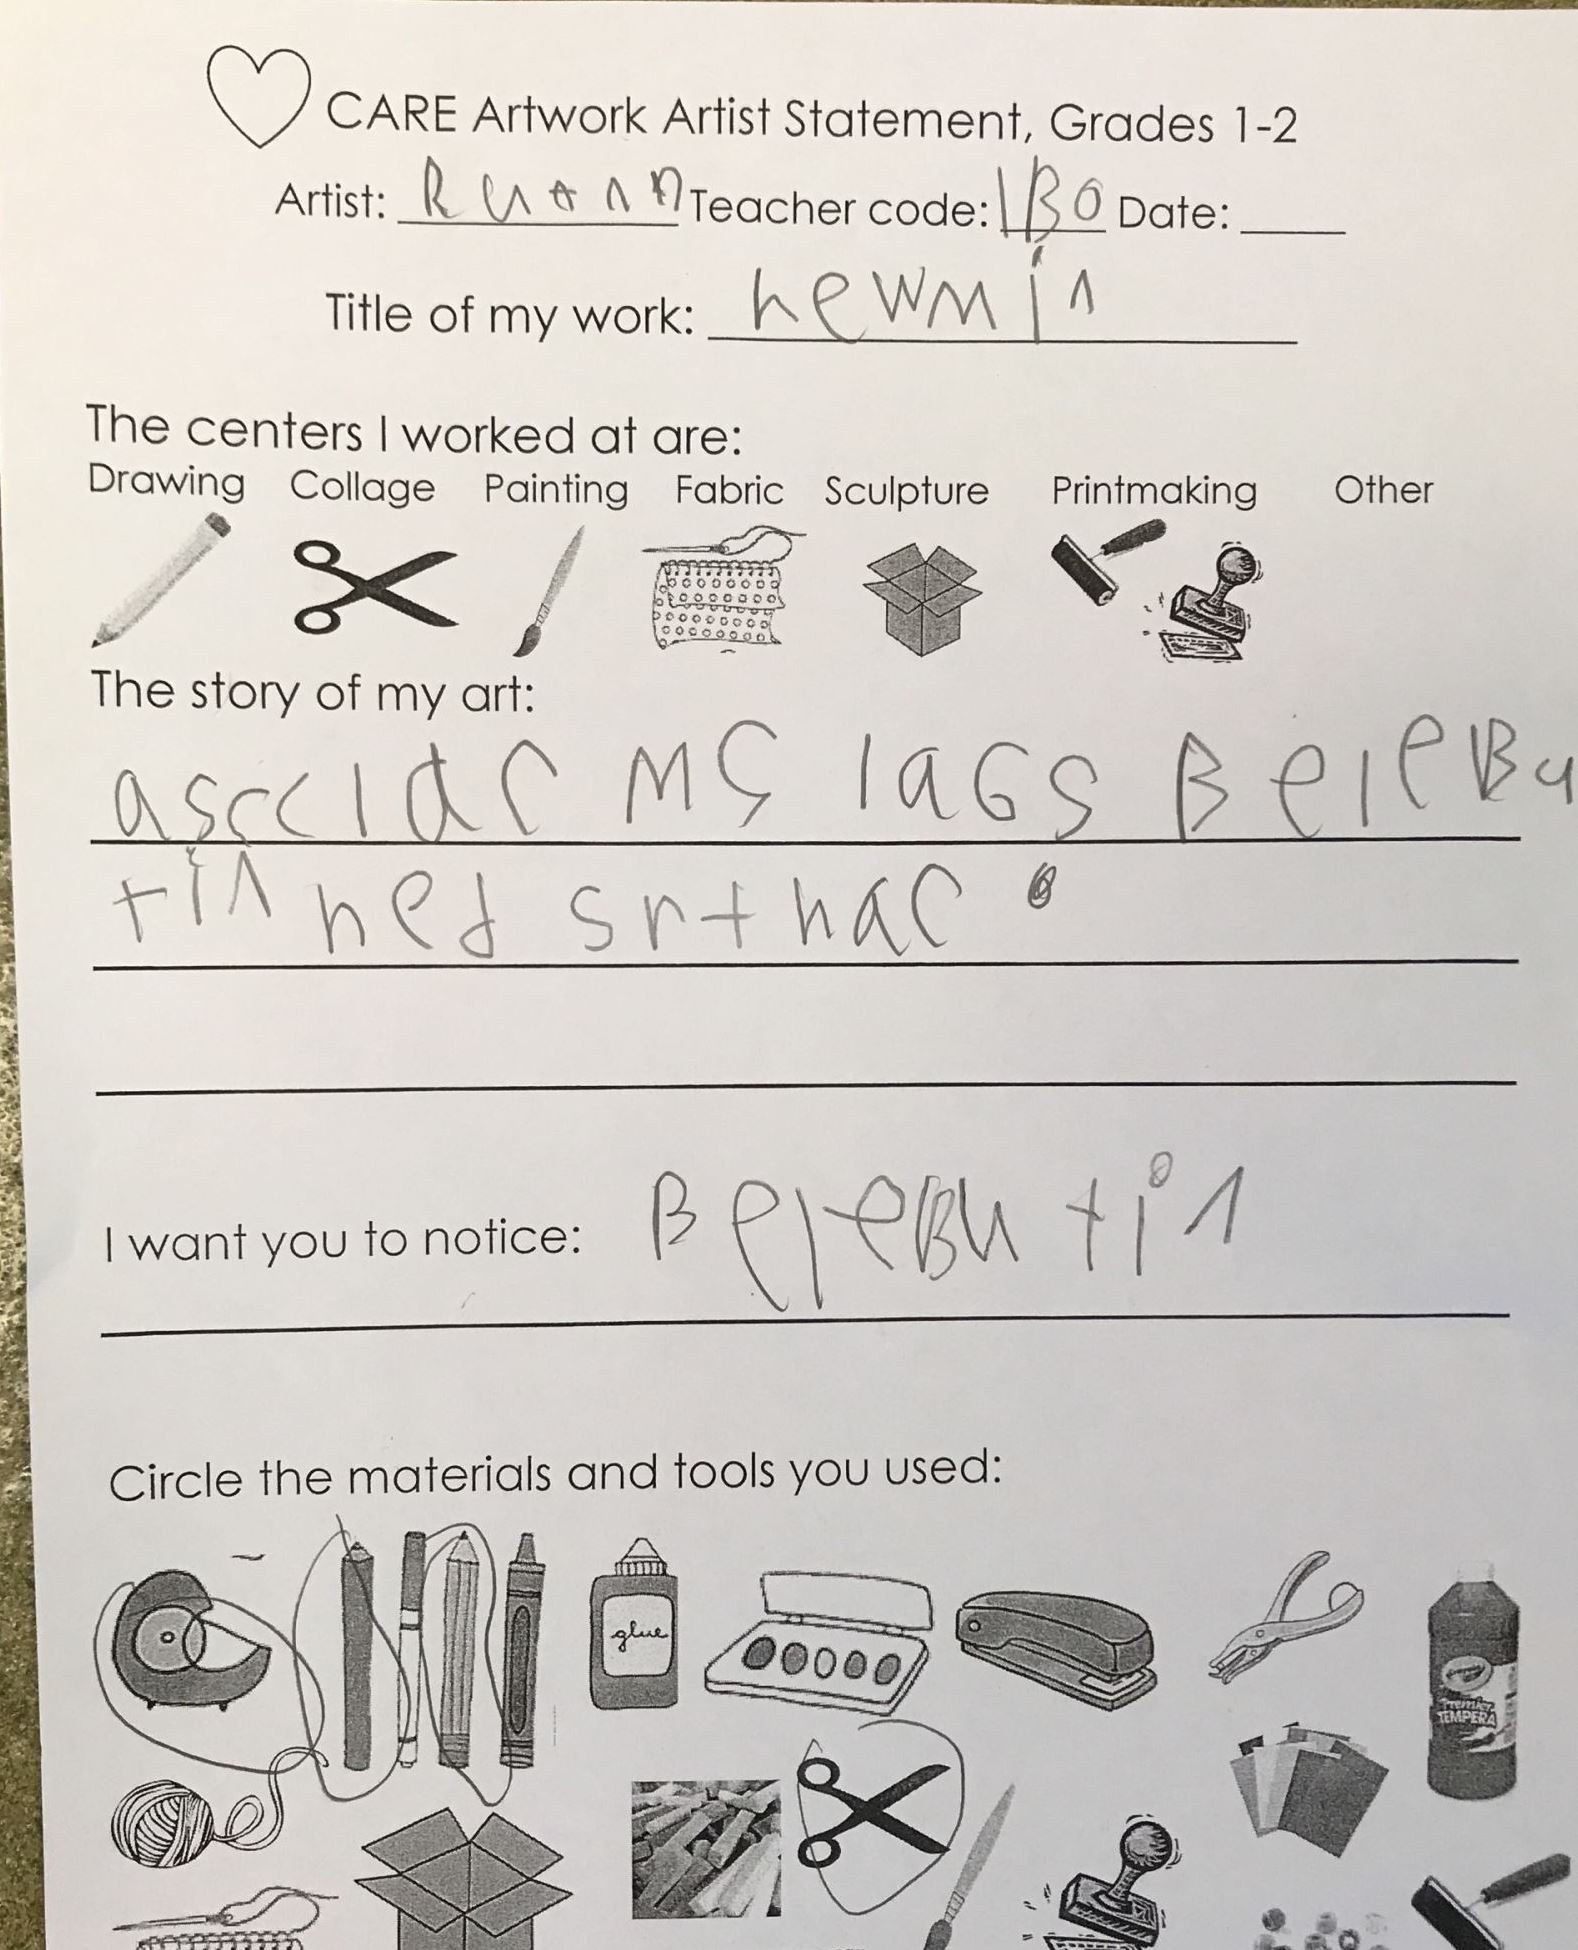 CARE Artwork Artist Statement, Grades 1-2
Artist: Ruann Teacher code: 1BO Date:
Title of my work: hewmin
The centers I worked at are:
Drawing Collage Painting Fabric Sculpture Printmaking Other
The story of my art:
MS laGS BeleBu
tin hed srt hac
I want you to notice: BeleBu tin
Circle the materials and tools you used:
glue
Crayola
Premier
TEMPERA